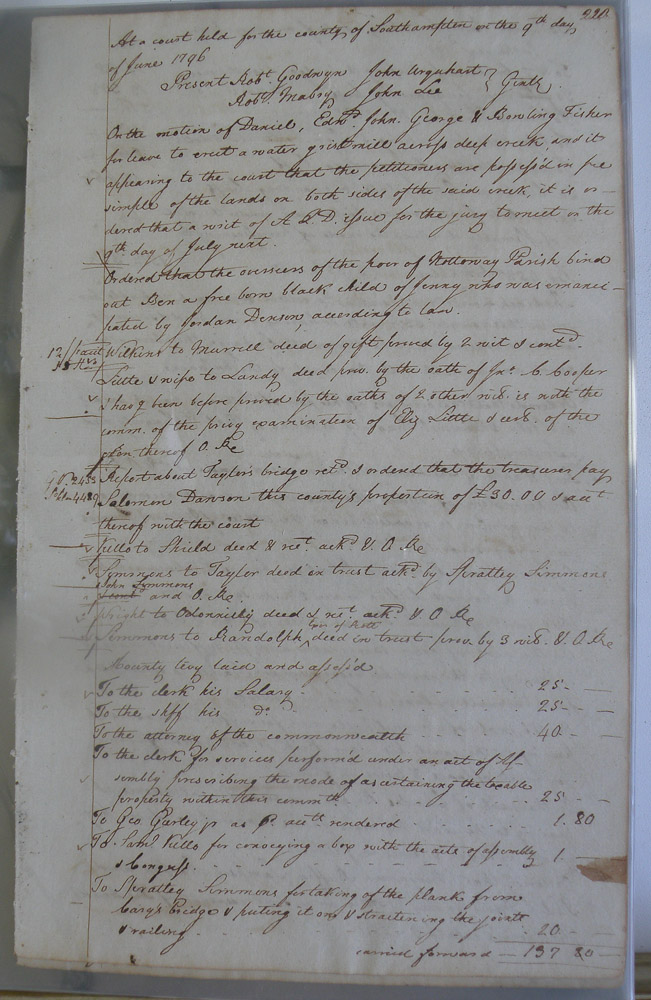 220
At a court held for the county of Southampton on the 9th day
of June 1796
Present Robt. Goodwyn John Urquhart } Gentn
Robt. Mabry John Lee
On the motion of Daniel, Edwd. John. George & Bowling Fisher
for leave to erect a water grist mill across deep creek, and it
appearing to the court that the petitioners are possess'd in fee
simple of the lands on both sides of the said creek, it is or-
dered that a writ of A Q D. issue for the jury to meet on the
9th day of July next.
Ordered that the overseers of the poor of Nottoway Parish bind
out Ben a free born black child of Jenny who was emanci-
pated by Jordan Denson, according to law.
Wilkins to Murrell deed of gift proved by 2 wit & contd.
Little & wife to Landy deed prov. by the oath of Jno. C. Cooper
& havg been before proved by the oaths of 2 other wits. is with the
comm. of the privy examination of Eliz Little & certe. of the
exon thereof O. Re
Report about Taylor's bridge retd. & ordered that the treasurer pay
Salomon Dawson this county's proportion of £30.00 & acct
thereof with the court
Vello to Shield deed & rect. ackd. & O. Re
Symmons to Taylor deed in trust ackd. by Spratley Simmons
John Simmons
and O. Re.
Wright to Odonnelly deed & rect ackd. & O Re
Simmons to Randolph, deed in trust prov. by 3 wits. & O. Re
County levy laid and assess'd
To the clerk his Salary 25 - —
To the shff his do. 25 - —
To the attorney of the commonwealth 40 - —
To the clerk for services perform'd under an act of As-
sembly prescribing the mode of ascertaining the taxable
property within this commth. 25 - -
To Geo. Gurley jr as pr. acct. rendered 1. 80
To Saml Vello for conveying a box with the acts of assembly
& Congress. 1 —
To Spratley Simmons for taking of the plank from
Cary's bridge & puting it on & straitening the joints
& railing 20 -
carried forward — 137 80 -